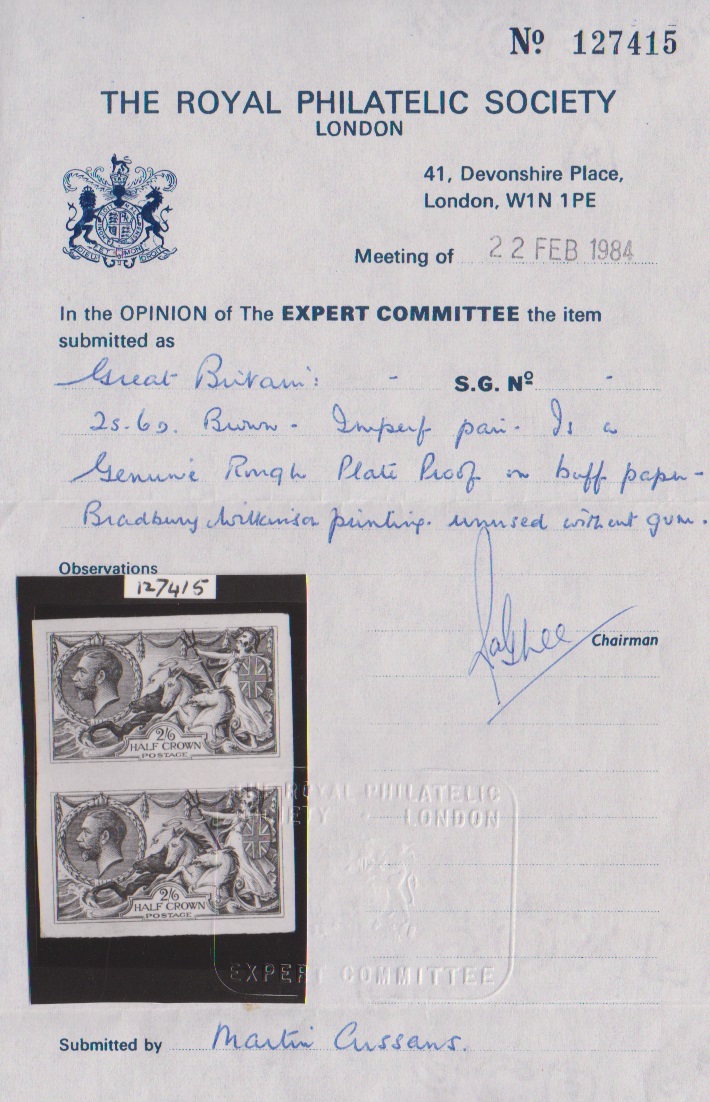 Nº 127415
THE ROYAL PHILATELIC SOCIETY
LONDON
41, Devonshire Place,
London, W1N 1PE
Meeting of 22 FEB 1984
In the OPINION of The EXPERT COMMITTEE the item
submitted as
Great Britain: - S.G. Nº -
2s.6d. Brown - Imperf pair. Is a
Genuine Rough Plate Proof on buff paper -
Bradbury Wilkinson printing. unused without gum.
Observations
127415
Chairman
2/6
HALF CROWN
POSTAGE
2/6
HALF CROWN
POSTAGE
THE ROYAL PHILATELIC
SOCIETY LONDON
EXPERT COMMITTEE
Submitted by Martin Cussans.